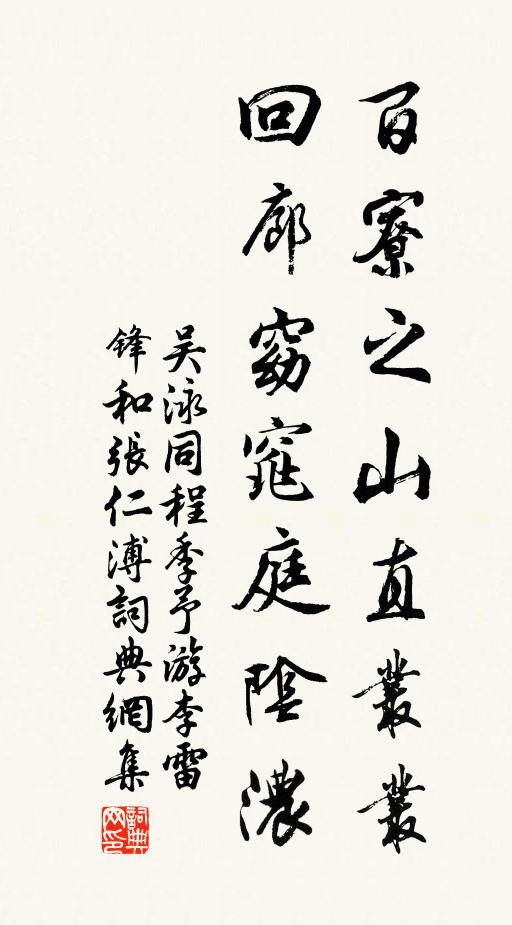 百寮之山直叢叢
回廊窈窕庭陰濃
吴泳同程季予游李雷
鋒和張仁溥詞典網集
詞典
网印